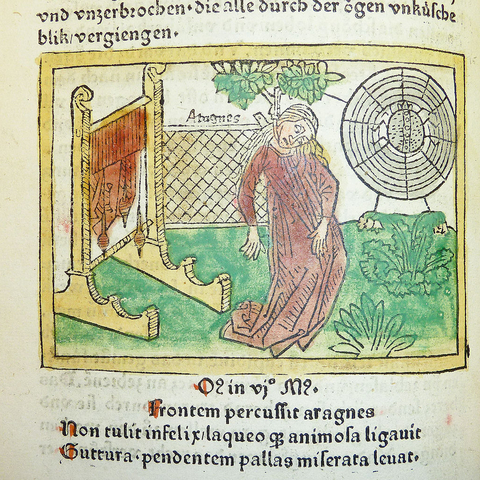 vnd vnzerbrochen · die alle durch der ögen vnküsche
blik / vergiengen ·
Aragnes
Oꝛ in vjº Mꝛ ·
Frontem percussit aragnes
Non tulit infelix / laqueo qꝫ animosa ligauit
Guttura · pendentem pallas miserata leuat ·